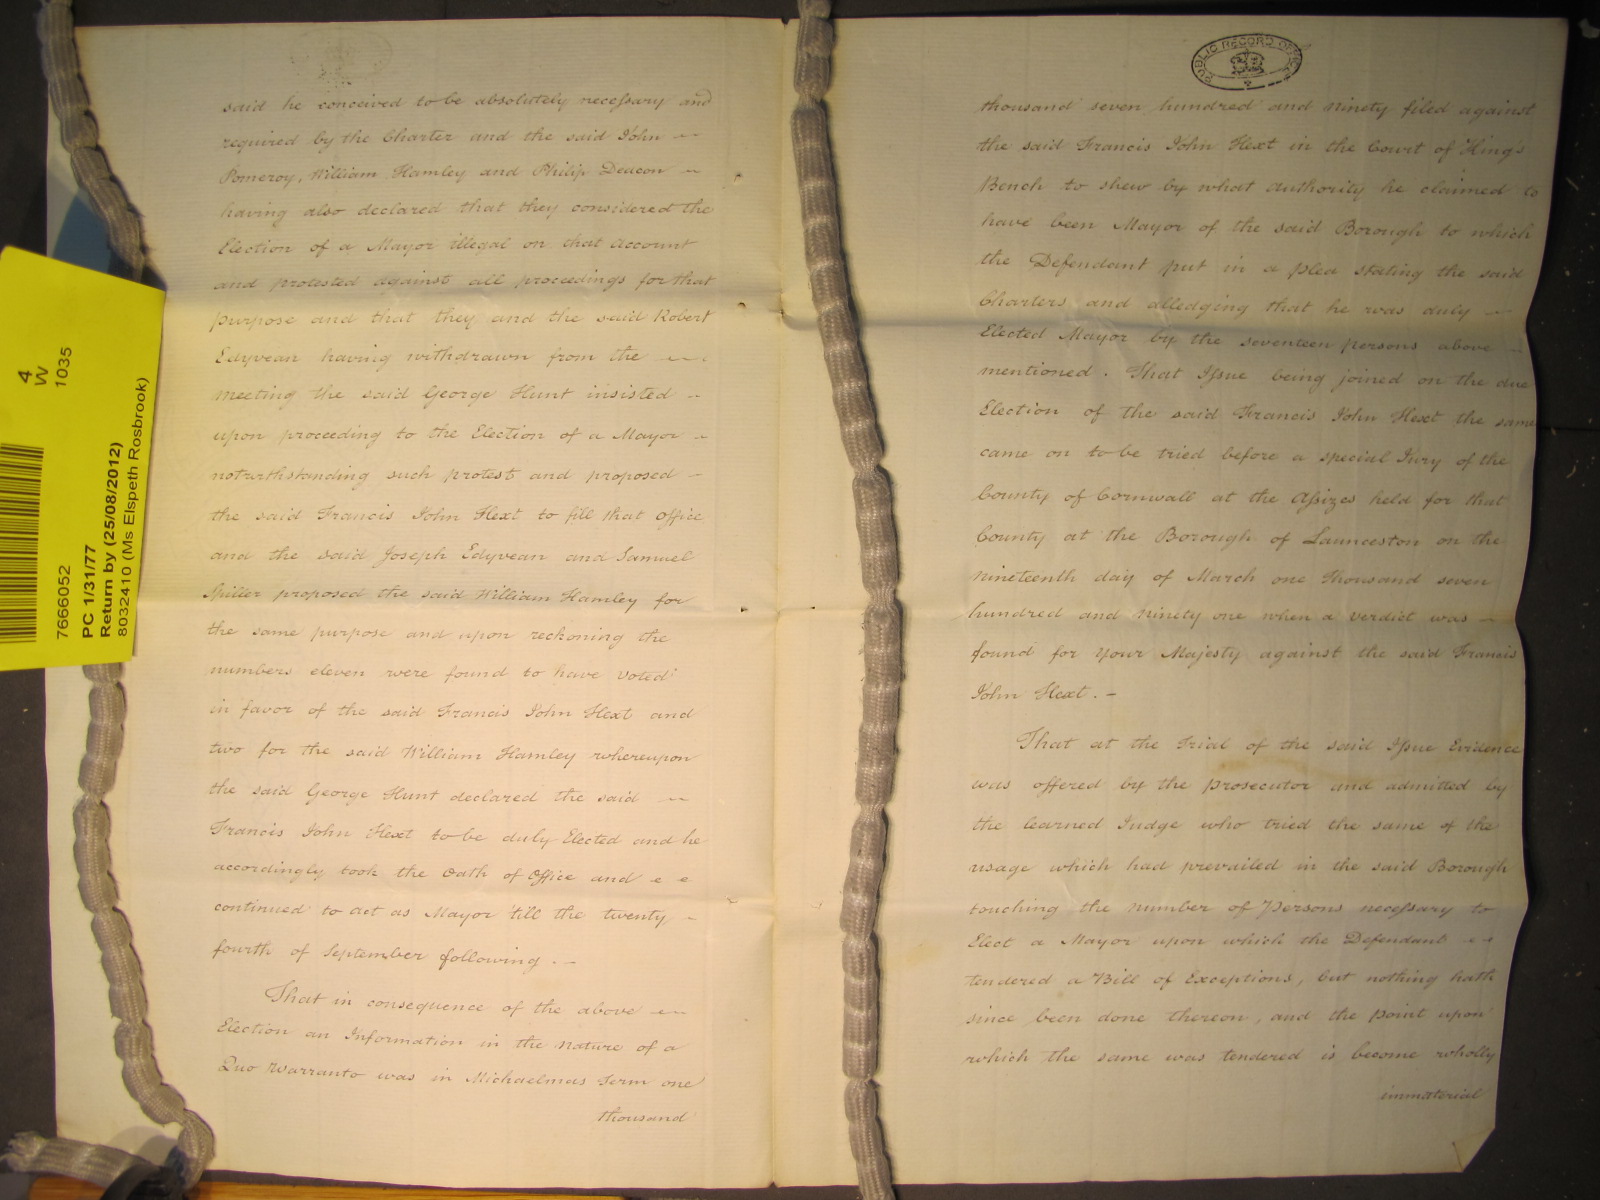 said he conceived to be absolutely necessary and
required by the Charter and the said John
Pomeroy, William Hamley and Philip Deacon
having also declared that they considered the
Election of a Mayor illegal on that Account
and protested against all proceedings for that
purpose and that they and the said Robert
Edyvean having withdrawn from the
meeting the said George Hunt insisted
upon proceeding to the Election of a Mayor
notwithstanding such protest and proposed
the said Francis John Hext to fill that Office
and the said Joseph Edyvean and Samuel
Spiller proposed the said William Hamley for
the same purpose and upon reckoning the
numbers eleven were found to have voted
in favor of the said Francis John Hext and
two for the said William Hamley whereupon
the said George Hunt declared the said
Francis John Hext to be duly Elected and he
accordingly took the Oath of Office and
continued to act as Mayor 'till the twenty
fourth of September following.
That in consequence of the above
Election an Information in the nature of a
Quo Warranto was in Michaelmas Term one
thousand
PUBLIC RECORD OFFICE
thousand seven hundred and ninety filed against
the said Francis John Hext in the Court of King's
Bench to shew by what authority he claimed to
have been Mayor of the said Borough to which
the Defendant put in a plea stating the said
Charters and alledging that he was duly
Elected Mayor by the seventeen persons above
mentioned. That Issue being joined on the due
Election of the said Francis John Hext the same
came on to be tried before a special Jury of the
County of Cornwall at the Assizes held for that
County at the Borough of Launceston on the
nineteenth day of March one thousand seven
hundred and ninety one when a verdict was
found for Your Majesty against the said Francis
John Hext. -
That at the trial of the said Issue Evidence
was offered by the prosecutor and admitted by
the learned Judge who tried the same of the
usage which had prevailed in the said Borough
touching the number of Persons necessary to
Elect a Mayor upon which the Defendant
tendered a Bill of Exceptions, but nothing hath
since been done thereon, and the point upon
which the same was tendered is become wholly
immaterial
4
W
1035
7666052
PC 1/31/77
Return by (25/08/2012)
8032410 (Ms Elspeth Rosbrook)